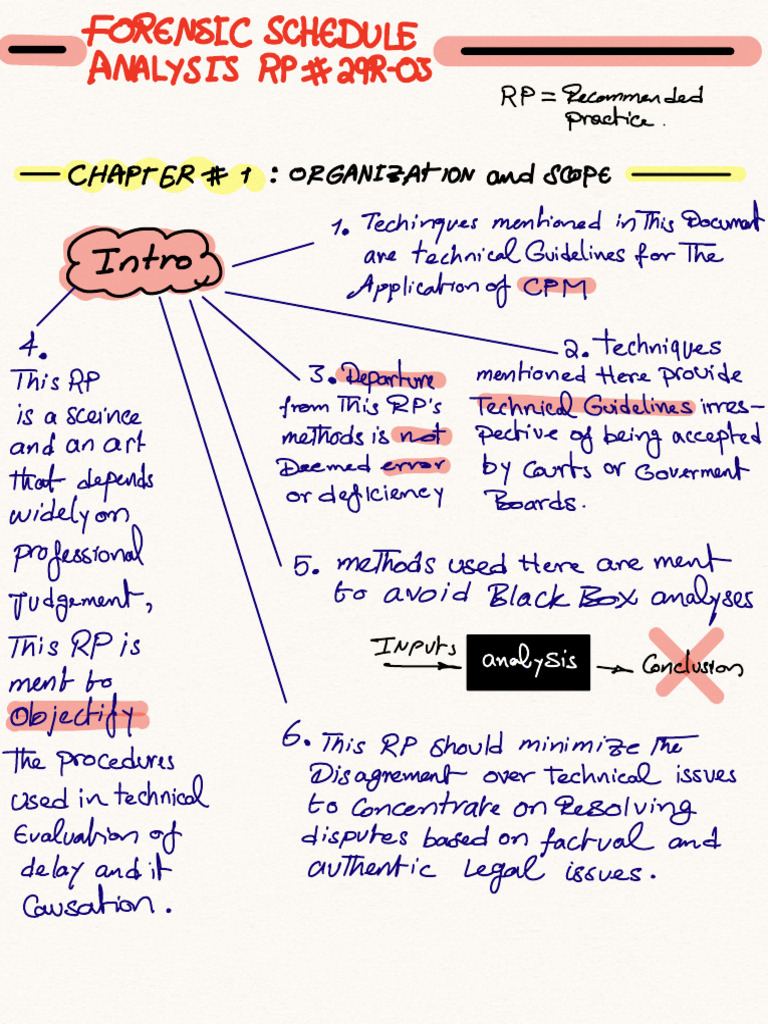 FORENSIC SCHEDULE
ANALYSIS RP# 29R-03
RP = Recommended
practice.
CHAPTER # 1 : ORGANIZATION and SCOPE
Intro
1. Techinques mentioned in This Document
are technical Guidelines for The
Application of CPM
2. techniques
mentioned Here provide
Technical Guidelines irres-
pective of being accepted
by Courts or Goverment
Boards.
3. Departure
from This RP's
methods is not
Deemed error
or deficiency
4.
This RP
is a sceince
and an art
that depends
widely on
professional
Judgement,
This RP is
ment to
Objectify
The procedures
used in technical
Evaluation of
delay and it
Causation.
5. methods used Here are ment
to avoid Black Box analyses
Inputs
analysis
Conclusion
6. This RP should minimize The
Disagrement over technical issues
to concentrate on Resolving
disputes based on factual and
authentic Legal issues.